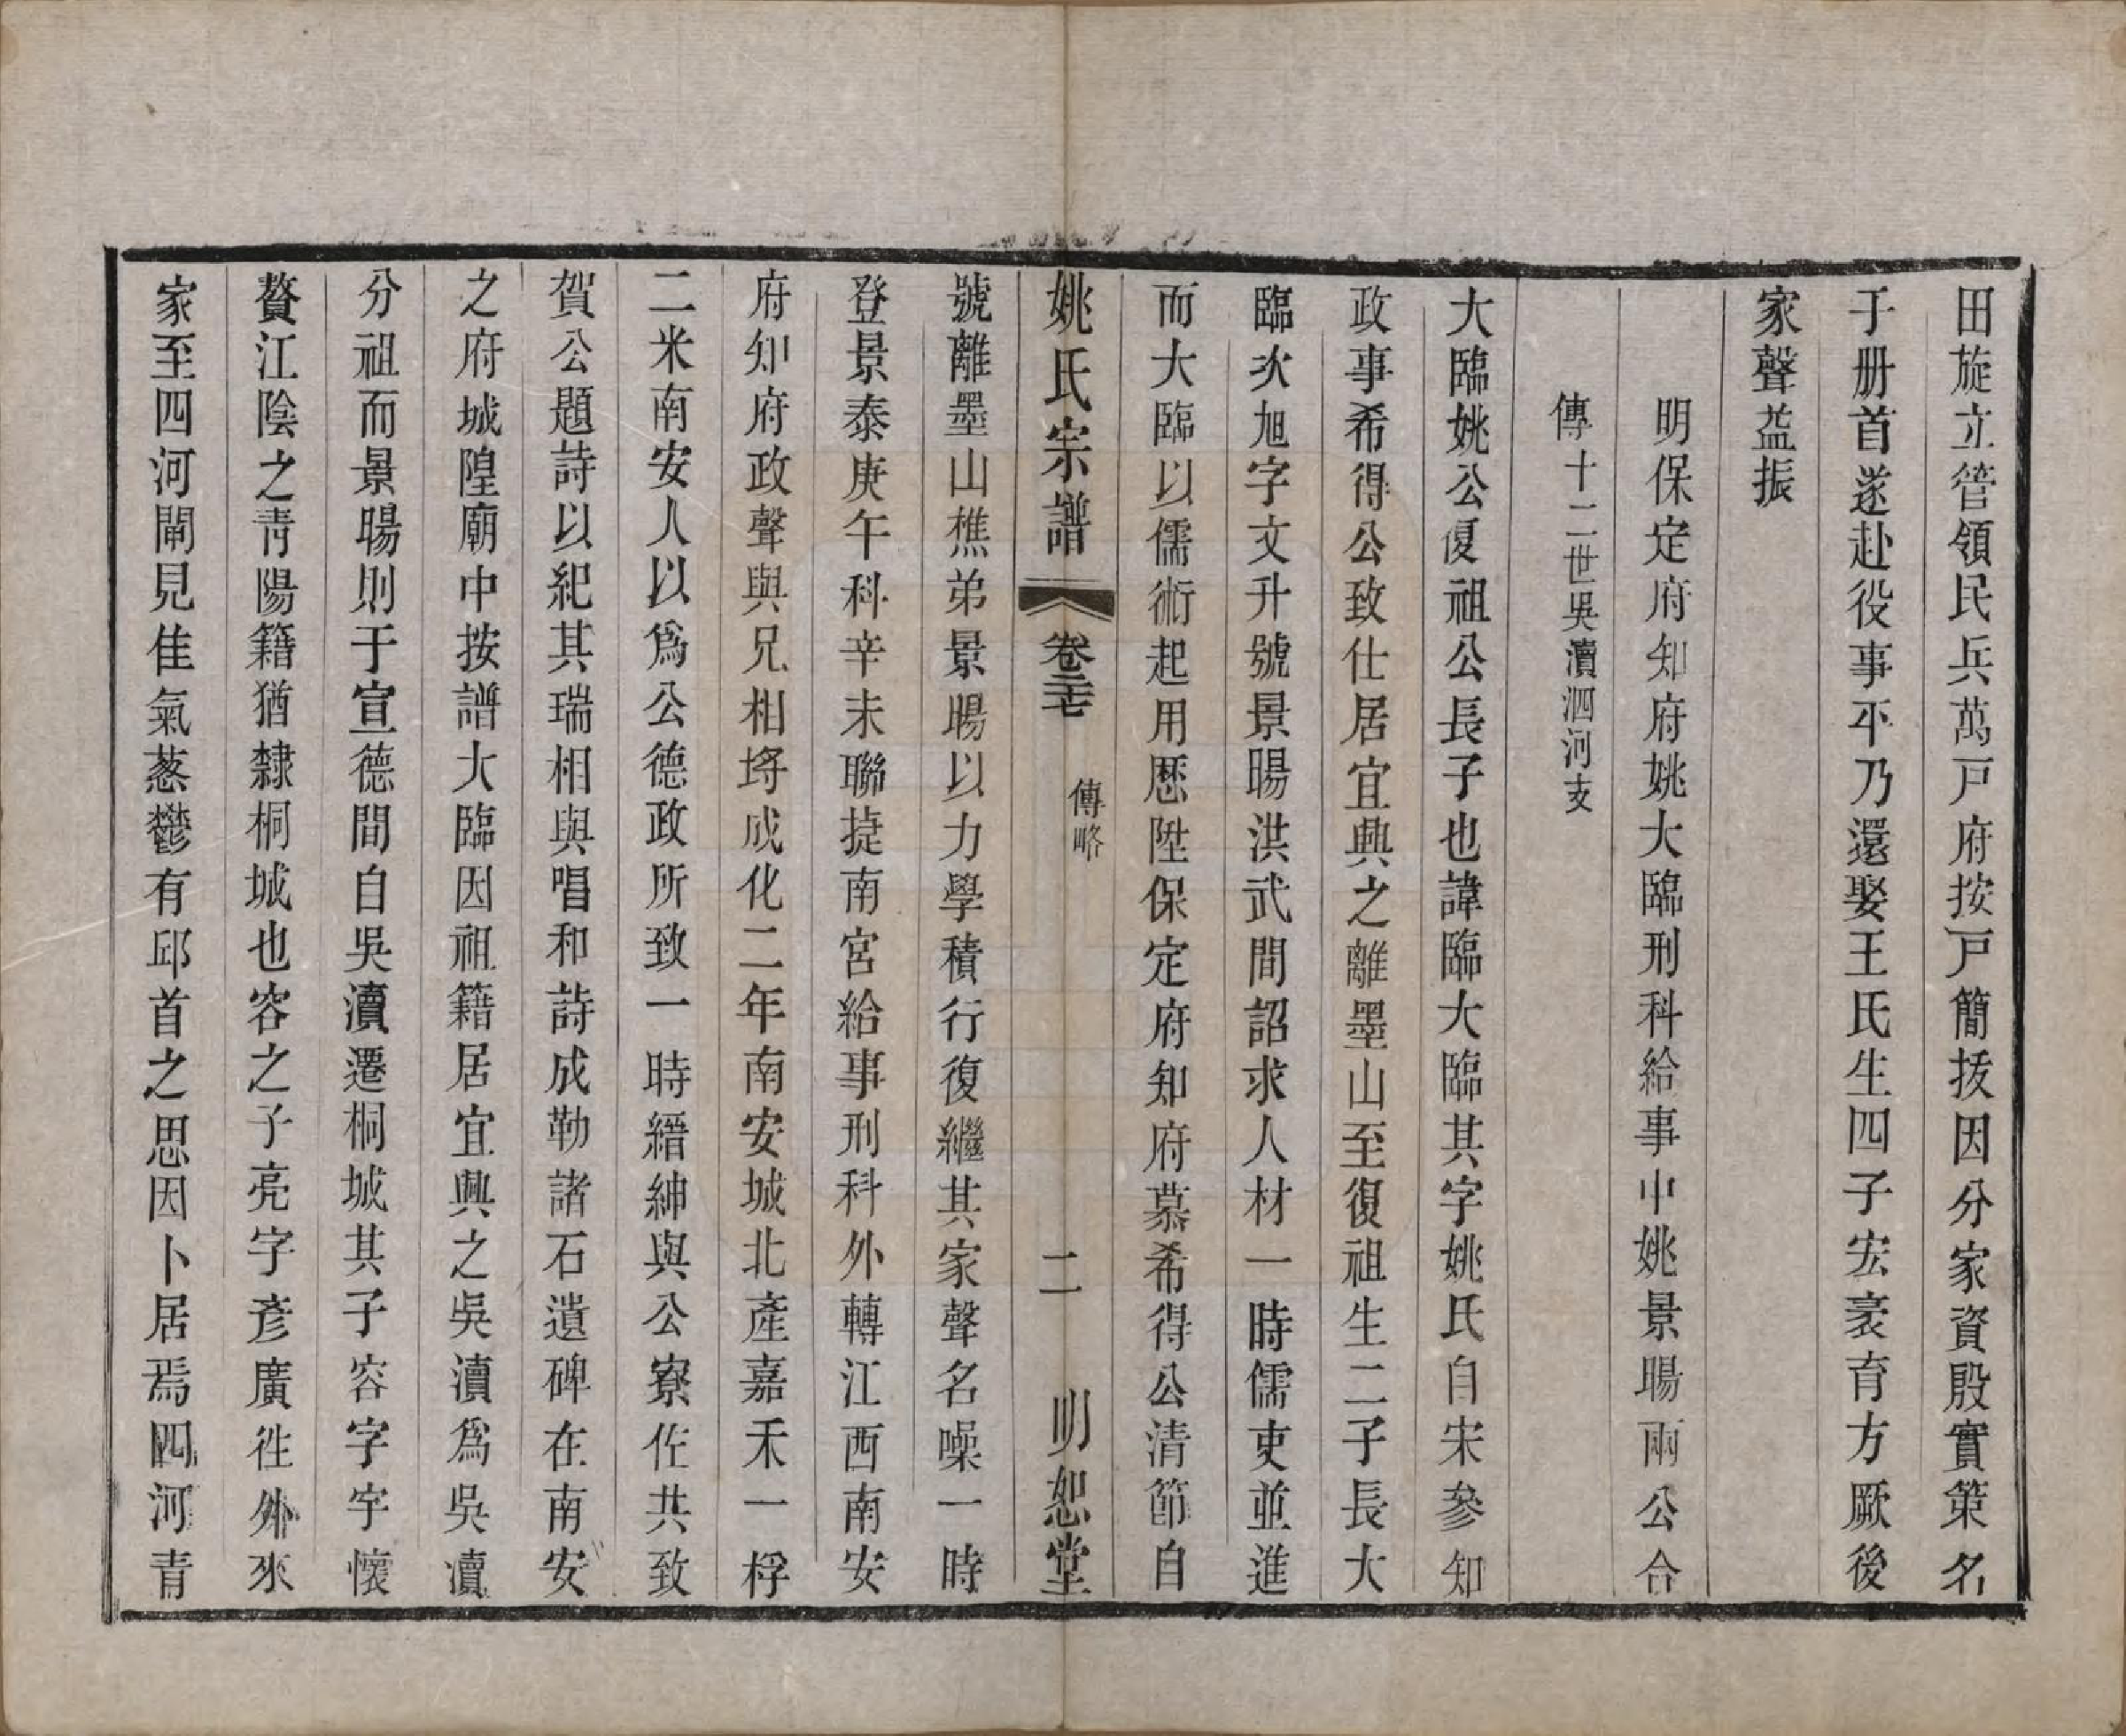 田旋立管領民兵萬戸府按戸簡拔因分家資殷實策名
于册首遂赴役事平乃還娶王氏生四子宏袤育方厥後
家聲益振
明保定府知府姚大臨刑科給事中姚景暘兩公合
傳十二世吳瀆泗河支
大臨姚公復祖公長子也諱臨大臨其字姚氏自宋參知
政事希得公致仕居宜興之離墨山至復祖生二子長大
臨次旭字文升號景暘洪武間詔求人材一時儒吏並進
而大臨以儒術起用歴陞保定府知府慕希得公清節自
姚氏宗譜 卷二七 傳略 二 明恕堂
號離墨山樵弟景暘以力學積行復繼其家聲名噪一時
登景泰庚午科辛未聯捷南宮給事刑科外轉江西南安
府知府政聲與兄相埒成化二年南安城北產嘉禾一稃
二米南安人以爲公德政所致一時縉紳與公寮佐共致
賀公題詩以紀其瑞相與唱和詩成勒諸石遺碑在南安
之府城隍廟中按譜大臨因祖籍居宜興之吳瀆爲吳瀆
分祖而景暘則于宣德間自吳瀆遷桐城其子容字宇懷
贅江陰之靑陽籍猶隸桐城也容之子亮字彥廣徃外來
家至四河閘見佳氣葱鬱有邱首之思因卜居焉四河青